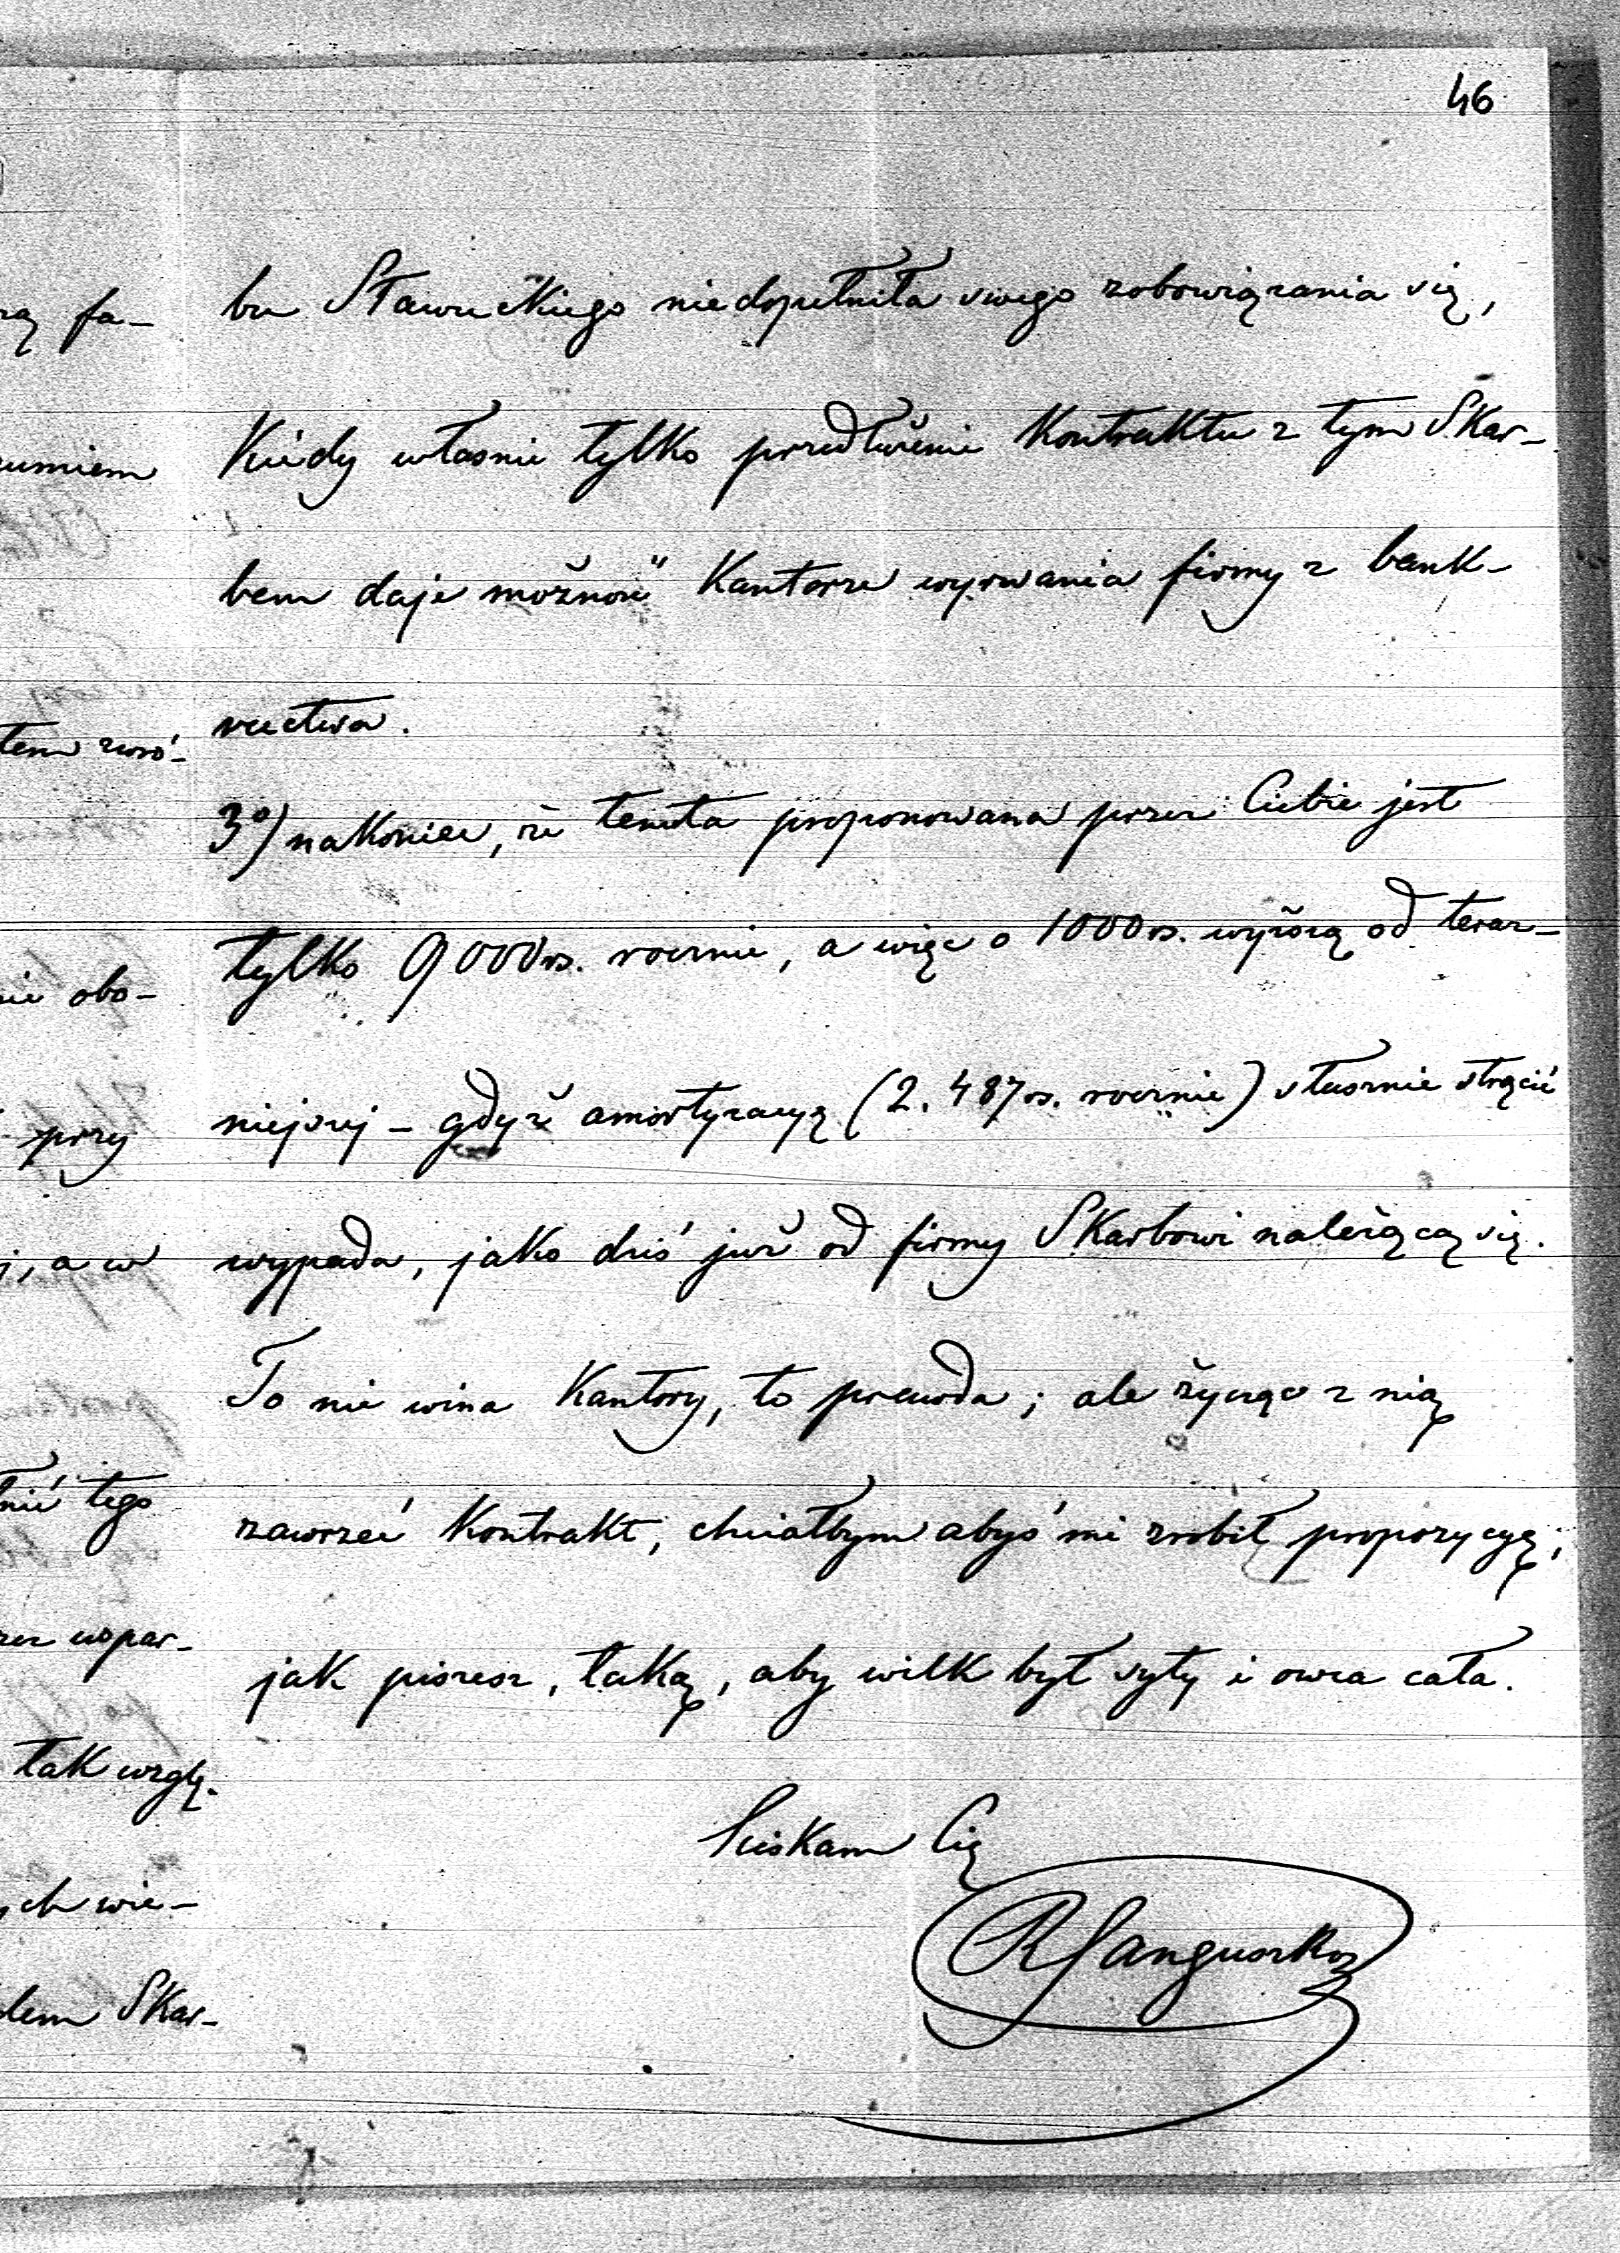 46
bu Sławuckiego niedopełniła swego zobowiązania się,
Kiedy własnie tylko przedłużenie Kontraktu z tym Skar-
bem daje możność Kantorze wyrwania firmy z bank-
ructwa.
3º) nakoniec, że tenuta proponowana przez Ciebie jest
tylko 9000 rs. rocznie, a więc o 1000 rs. wyższą od teraz-
niejszej – gdyż amortyzacyą (2.487 rs. rocznie) słusznie strącić
wypada, jako dziś już od firmy Skarbowi należącą się.
To nie wina Kantory, to prawda; ale życząc z nią
zawrzeć Kontrakt, chciałbym abyś mi zrobił propozycyą;
jak piszesz, taką, aby wilk był syty i owca cała.
Sciskam Cię
RSanguszko
rą fa-
zumiem
tem zwró-
nie obo-
przy
j, a w
łnić tego
zez wspar-
tak wzglę-
ych wie-
dem Skar-